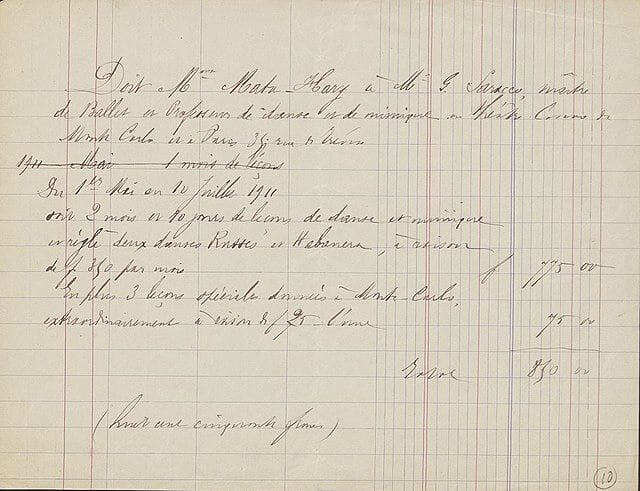 Doit Mme Mata-Hary à Mr G. Saracco, maître
de Ballet et Professeur de danse et de mimique au Théâtre Casino de
Monte Carlo et à Paris 35 rue de Trévise
1911 Mai 1 mois de leçons
Du 1er Mai au 10 Juillet 1911
soit 2 mois et 10 jours de leçons de danse et mimique
et réglé deux danses Russes et Habanera, à raison
de f. par mois f 775 00
En plus 3 leçons spéciales données à Monte-Carlo,
extraordinairement à raison de f 25 l'une 75 00
Total 850 00
(huit cent cinquante francs)
10